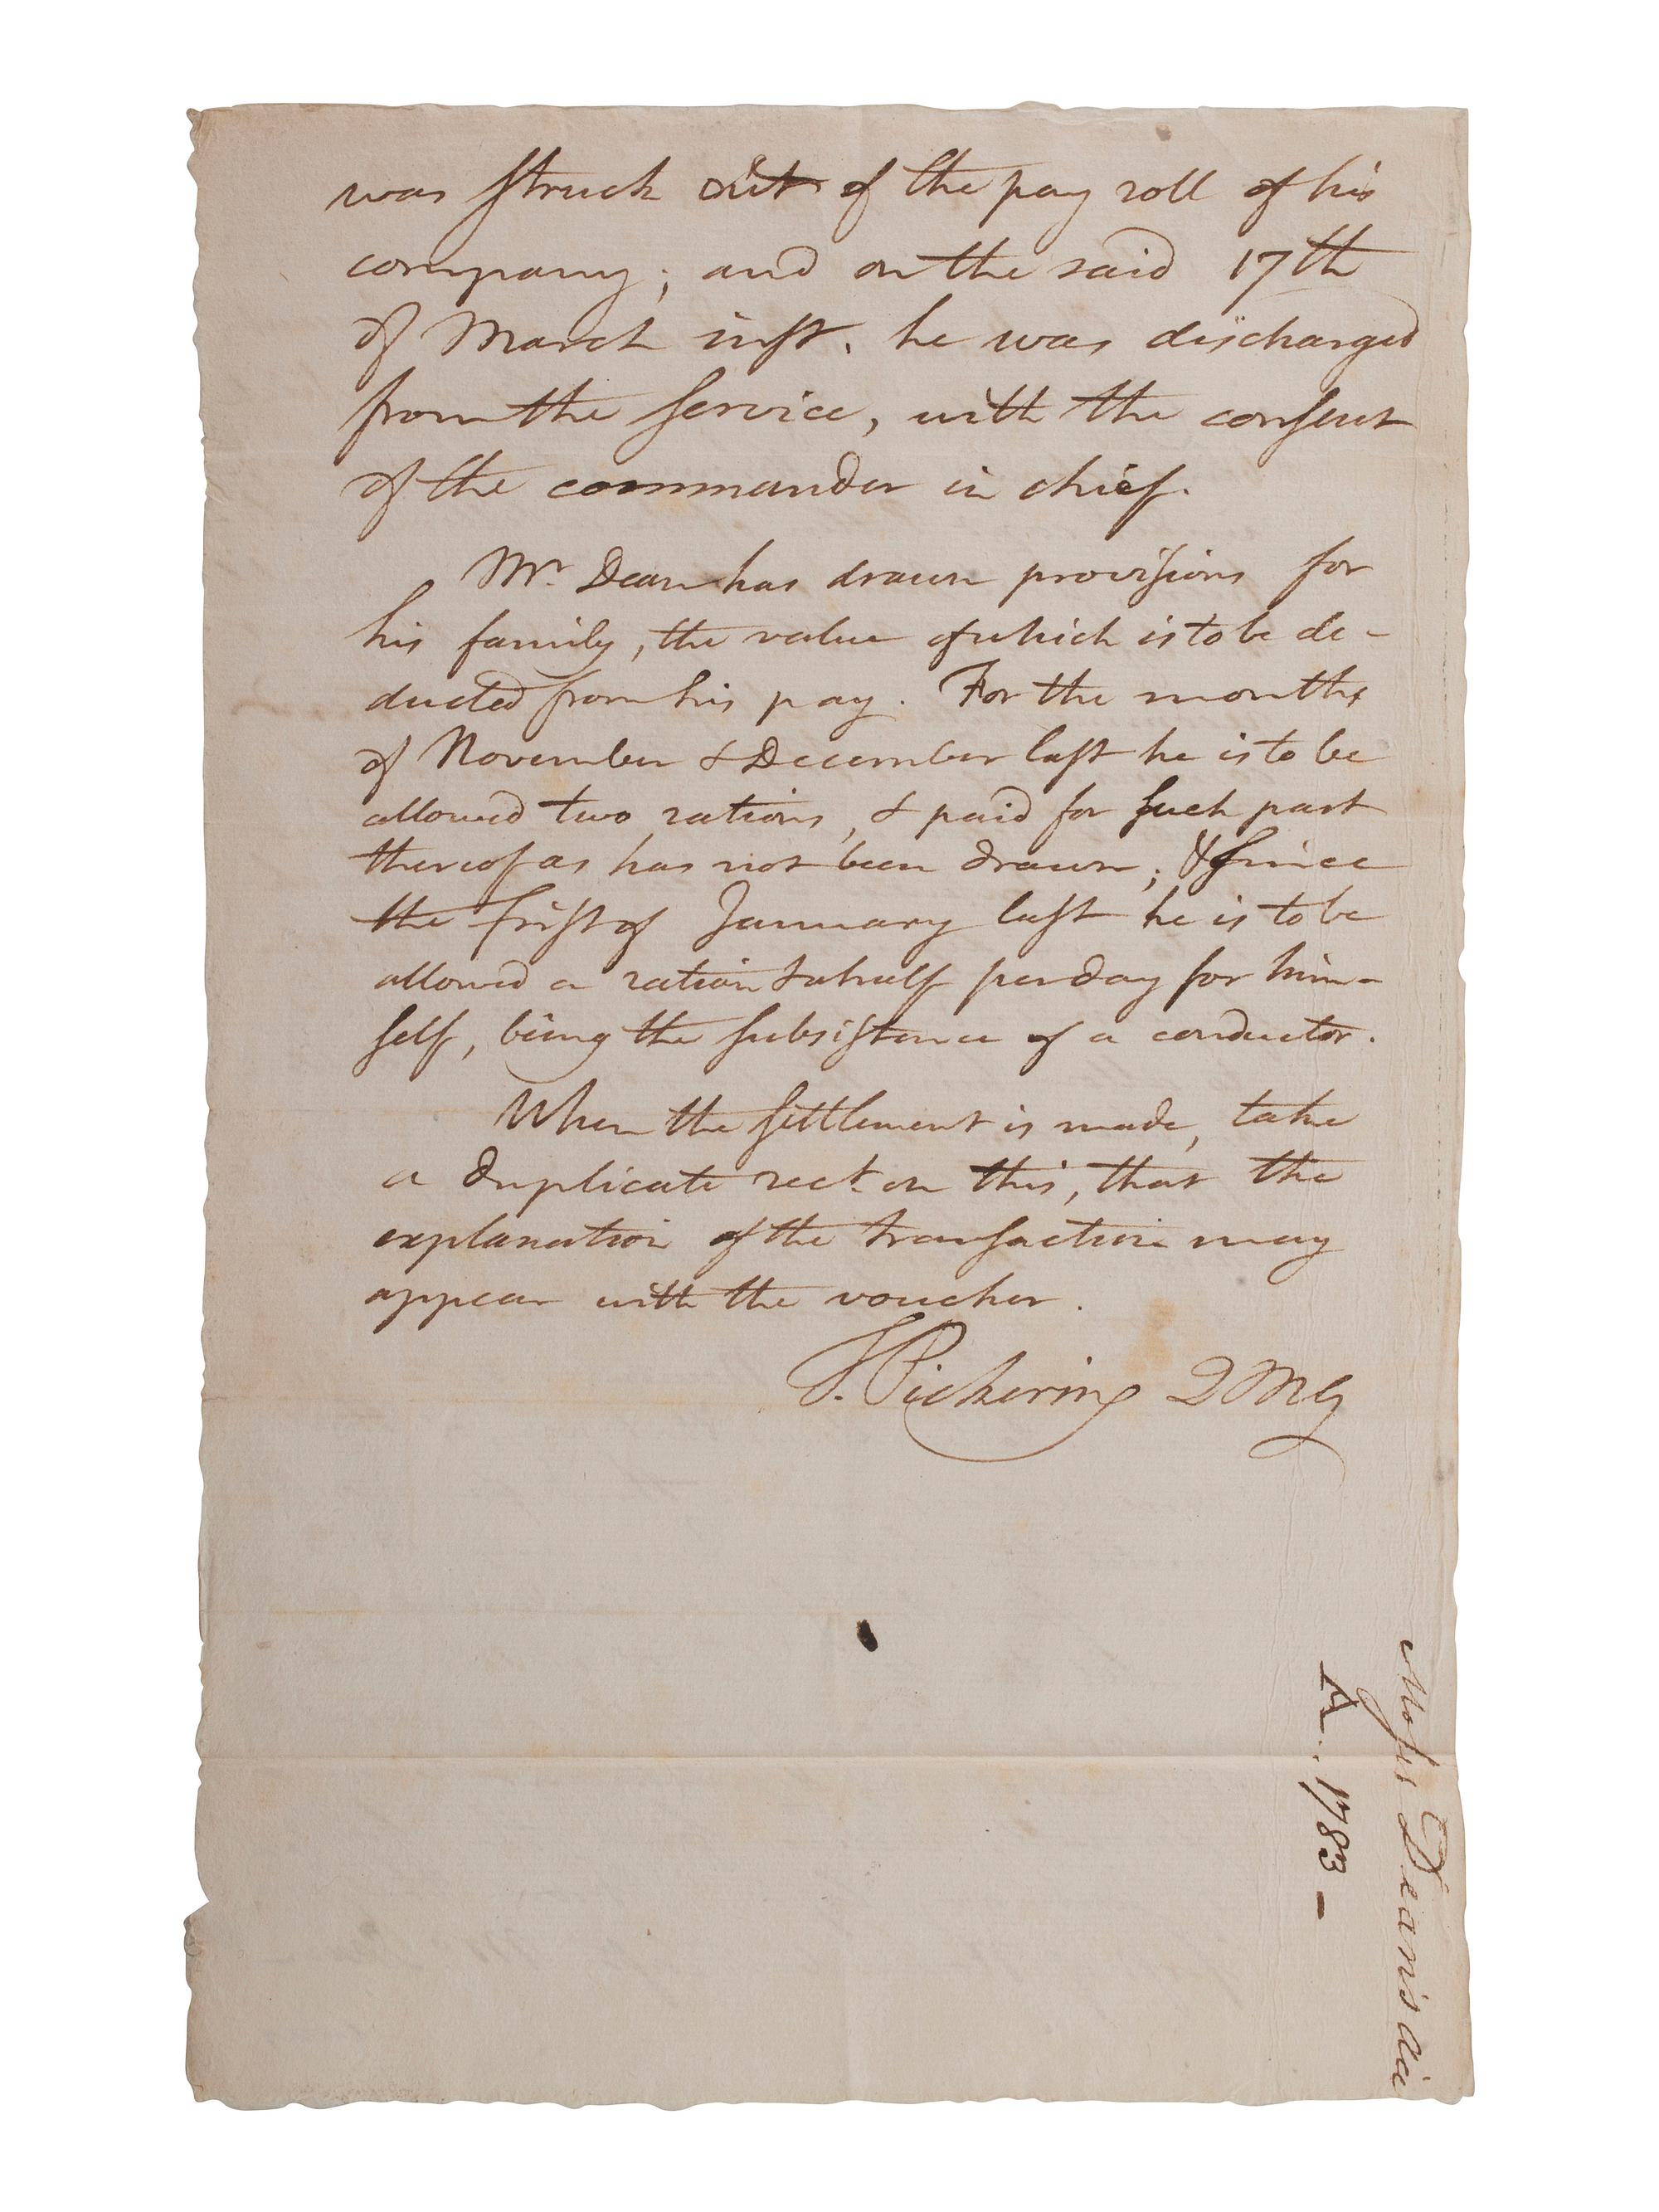 was struck out of the pay roll of his
company; and on the said 17th
of March inst. he was discharged
from the service, with the consent
of the commander in chief.
Mr. Dean has drawn provisions for
his family, the value of which is to be de-
ducted from his pay. For the months
of November & December last he is to be
allowed two rations, & paid for such part
thereof as has not been drawn; & since
the first of January last he is to be
allowed a ration & a half per day for him-
self, being the subsistance of a conductor.
When the settlement is made, take
a duplicate rect. on this, that the
explanation of the transaction may
appear with the voucher.
T. Pickering QMG
Moses Dean's acc
A.. 1783 -